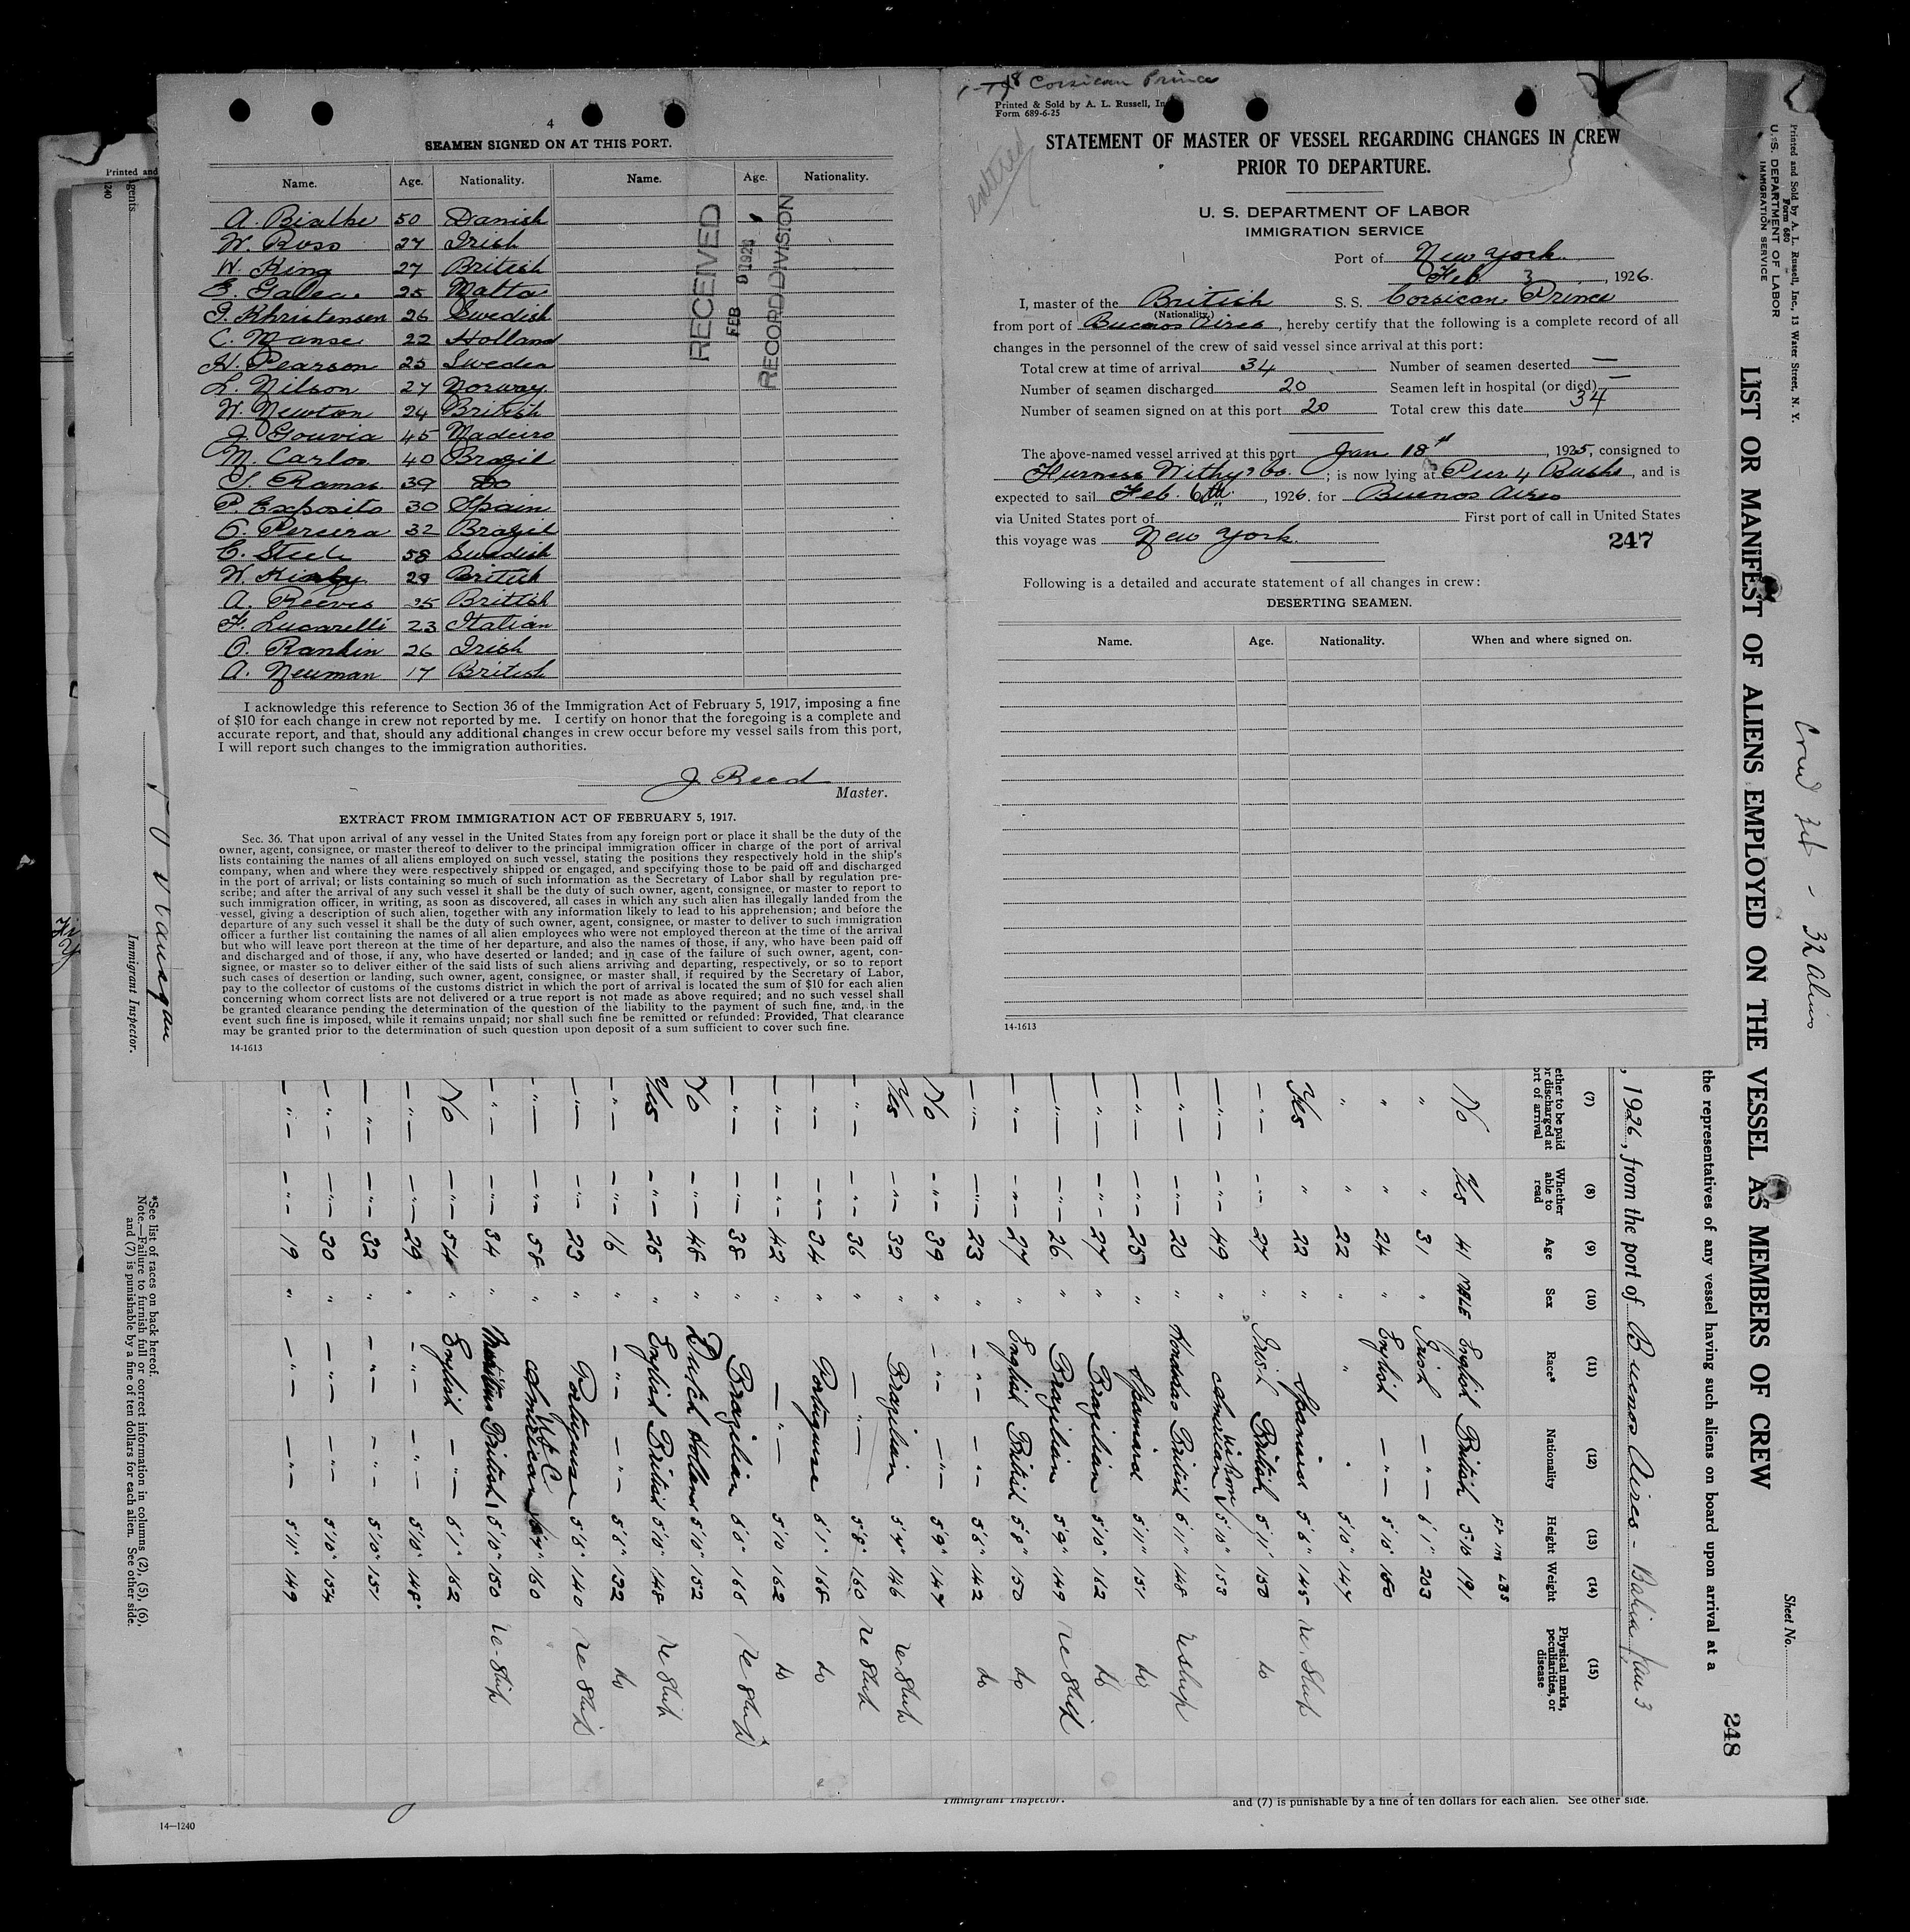 4
SEAMEN SIGNED ON AT THIS PORT.
Name. Age. Nationality. Name. Age. Nationality.
A. Bialhe 50 Danish
W. Ross 27 Irish
W. King 27 British
E. Galea 25 Malta
J. Khristensen 26 Swedish
C. Manse 22 Holland
H. Pearson 25 Sweden
L. Nilson 27 Norway
W. Newton 24 British
J. Gouvia 45 Madeiro
M. Carlos 40 Brazil
S. Ramas 39 Do
P. Exposito 30 Spain
C. Pereira 32 Brazil
C. Steele 58 Swedish
W. 29 British
A. Reeves 25 British
F. Lucarelli 23 Italian
O. Rankin 26 Irish
A. Newman 17 British
RECEIVED
FEB 8 1926
RECORD DIVISION
I acknowledge this reference to Section 36 of the Immigration Act of February 5, 1917, imposing a fine
of $10 for each change in crew not reported by me. I certify on honor that the foregoing is a complete and
accurate report, and that, should any additional changes in crew occur before my vessel sails from this port,
I will report such changes to the immigration authorities.
J. Reed
Master.
EXTRACT FROM IMMIGRATION ACT OF FEBRUARY 5, 1917.
Sec. 36. That upon arrival of any vessel in the United States from any foreign port or place it shall be the duty of the
owner, agent, consignee, or master thereof to deliver to the principal immigration officer in charge of the port of arrival
lists containing the names of all aliens employed on such vessel, stating the positions they respectively hold in the ship's
company, when and where they were respectively shipped or engaged, and specifying those to be paid off and discharged
in the port of arrival; or lists containing so much of such information as the Secretary of Labor shall by regulation pre-
scribe; and after the arrival of any such vessel it shall be the duty of such owner, agent, consignee, or master to report to
such immigration officer, in writing, as soon as discovered, all cases in which any such alien has illegally landed from the
vessel, giving a description of such alien, together with any information likely to lead to his apprehension; and before the
departure of any such vessel it shall be the duty of such owner, agent, consignee, or master to deliver to such immigration
officer a further list containing the names of all alien employees who were not employed thereon at the time of the arrival
but who will leave port thereon at the time of her departure, and also the names of those, if any, who have been paid off
and discharged and of those, if any, who have deserted or landed; and in case of the failure of such owner, agent, con-
signee, or master so to deliver either of the said lists of such aliens arriving and departing, respectively, or so to report
such cases of desertion or landing, such owner, agent, consignee, or master shall, if required by the Secretary of Labor,
pay to the collector of customs of the customs district in which the port of arrival is located the sum of $10 for each alien
concerning whom correct lists are not delivered or a true report is not made as above required; and no such vessel shall
be granted clearance pending the determination of the question of the liability to the payment of such fine, and, in the
event such fine is imposed, while it remains unpaid; nor shall such fine be remitted or refunded: Provided, That clearance
may be granted prior to the determination of such question upon deposit of a sum sufficient to cover such fine.
14-1613
1-18 Corsican Prince
Printed & Sold by A. L. Russell, In
Form 689-6-25
entered
STATEMENT OF MASTER OF VESSEL REGARDING CHANGES IN CREW
PRIOR TO DEPARTURE.
U. S. DEPARTMENT OF LABOR
IMMIGRATION SERVICE
Port of New York
Feb 3, 1926.
I, master of the British S. S. Corsican Prince
(Nationality.)
from port of Buenos Aires, hereby certify that the following is a complete record of all
changes in the personnel of the crew of said vessel since arrival at this port:
Total crew at time of arrival 34 Number of seamen deserted —
Number of seamen discharged 20 Seamen left in hospital (or died) —
Number of seamen signed on at this port 20 Total crew this date 34
The above-named vessel arrived at this port Jan 18th, 1925, consigned to
Furness Withy & Co.; is now lying at Pier 4 Bush, and is
expected to sail Feb. 6th, 1926. for Buenos Aires
via United States port of First port of call in United States
this voyage was New York
247
Following is a detailed and accurate statement of all changes in crew:
DESERTING SEAMEN.
Name. Age. Nationality. When and where signed on.
14-1613
Printed and Sold by A. L. Russell, Inc., 13 Water Street, N. Y.
Form 680
U. S. DEPARTMENT OF LABOR
IMMIGRATION SERVICE
LIST OR MANIFEST OF ALIENS EMPLOYED ON THE VESSEL AS MEMBERS OF CREW
Crew 34 - 32 Aliens
Sheet No.
248
the representatives of any vessel having such aliens on board upon arrival at a
, 1926, from the port of Buenos Aires - Bahia Jan 3
(7) (8) (9) (10) (11) (12) (13) (14) (15)
ether to be paid or discharged at ort of arrival Whether able to read Age Sex Race* Nationality Height Weight Physical marks, peculiarities, or disease
Ft Ins Lbs
No Yes 41 MALE English British 5-10 191
" " 31 " Irish —"— 6'1" 203
" " 24 " English —"— 5'10" 150
" " 22 " " " 5'10" 147
Yes " 22 " Spaniard 5'6" 145 re Ship
—"— —"— 27 " Irish British 5'11" 150 do
—"— —"— 49 " American 5'10" 153
—"— —"— 20 " Honduras British 5'11" 148 reship
—"— —"— 25 " Spaniard 5'11" 151 do
—"— —"— 27 " Brazilian 5'10" 162 do
—"— —"— 26 " Brazilian 5'9" 149 re Ship
—"— —"— 27 " English British 5'8" 150 do
—"— —"— 23 " —"— —"— 5'6" 142 do
No —"— 39 " —"— —"— 5'9" 147
Yes —"— 32 " Brazilian 5'4" 146 re Ship
—"— —"— 36 " —"— 5'8" 160 re Ship
—"— —"— 34 " Portuguese 6'1" 168 do
—"— —"— 42 " —"— 5'10" 162 do
—"— —"— 38 " Brazilian 6'0" 166 re Ship
No —"— 48 " Dutch Holland 5'10" 152
Yes —"— 25 " English British 5'10" 148 re Ship
—"— —"— 16 " —"— —"— 5'6" 132 do
—"— —"— 23 " Portuguese 5'6" 140 re Ship
—"— —"— 58 " USC American 160
—"— —"— 34 " British 5'10" 150 re-Ship
No —"— 54 " English —"— 6'1" 162
—"— —"— 29 " —"— —"— 5'10" 148
—"— —"— 32 " —"— —"— 5'10" 151
—"— —"— 30 " —"— —"— 5'10" 154
—"— —"— 19 " —"— —"— 5'11" 149
*See list of races on back hereof.
Note.—Failure to furnish full or correct information in columns (2), (5), (6),
and (7) is punishable by a fine of ten dollars for each alien. See other side.
Immigrant Inspector.
Printed and
1240
agents
Immigrant Inspector.
and (7) is punishable by a fine of ten dollars for each alien. See other side.
14—1240